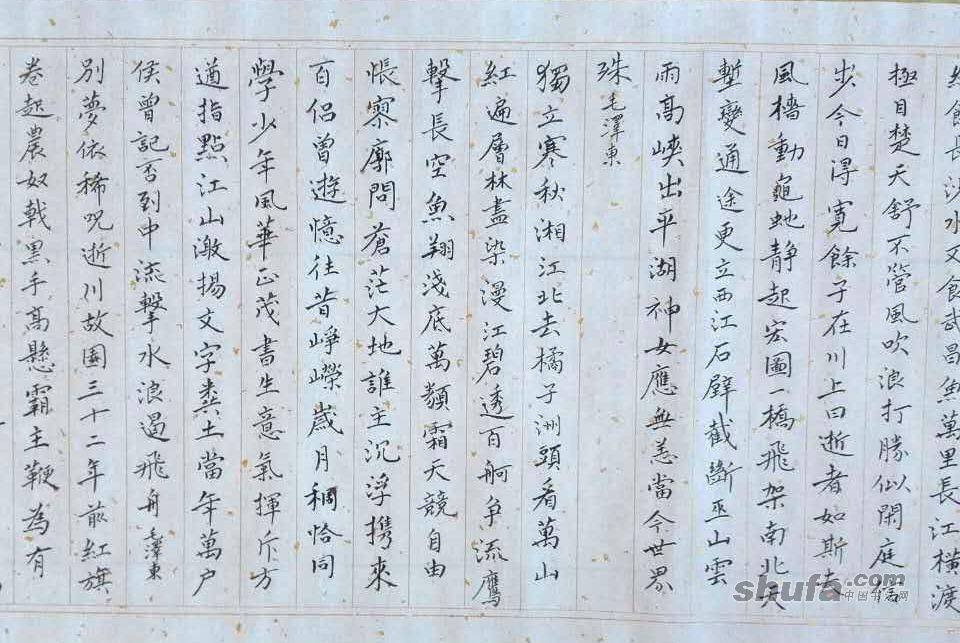 飲長沙水又食武昌魚萬里長江橫渡
極目楚天舒不管風吹浪打勝似閑庭信
步今日得寬餘子在川上曰逝者如斯夫
風檣動龜虵靜起宏圖一橋飛架南北天
塹變通途更立西江石壁截斷巫山雲
雨高峽出平湖神女應無恙當今世界
殊 毛澤東
獨立寒秋湘江北去橘子洲頭看萬山
紅遍層林盡染漫江碧透百舸爭流鷹
擊長空魚翔淺底萬類霜天競自由
悵寥廓問蒼茫大地誰主沉浮攜來
百侶曾遊憶往昔崢嶸歲月稠恰同
學少年風華正茂書生意氣揮斥方
遒指點江山激揚文字糞土當年萬户
侯曾記否到中流擊水浪遏飛舟 毛澤東
別夢依稀咒逝川故園三十二年前紅旗
卷起農奴戟黑手高懸霸主鞭為有
shufa.com
中国书法网